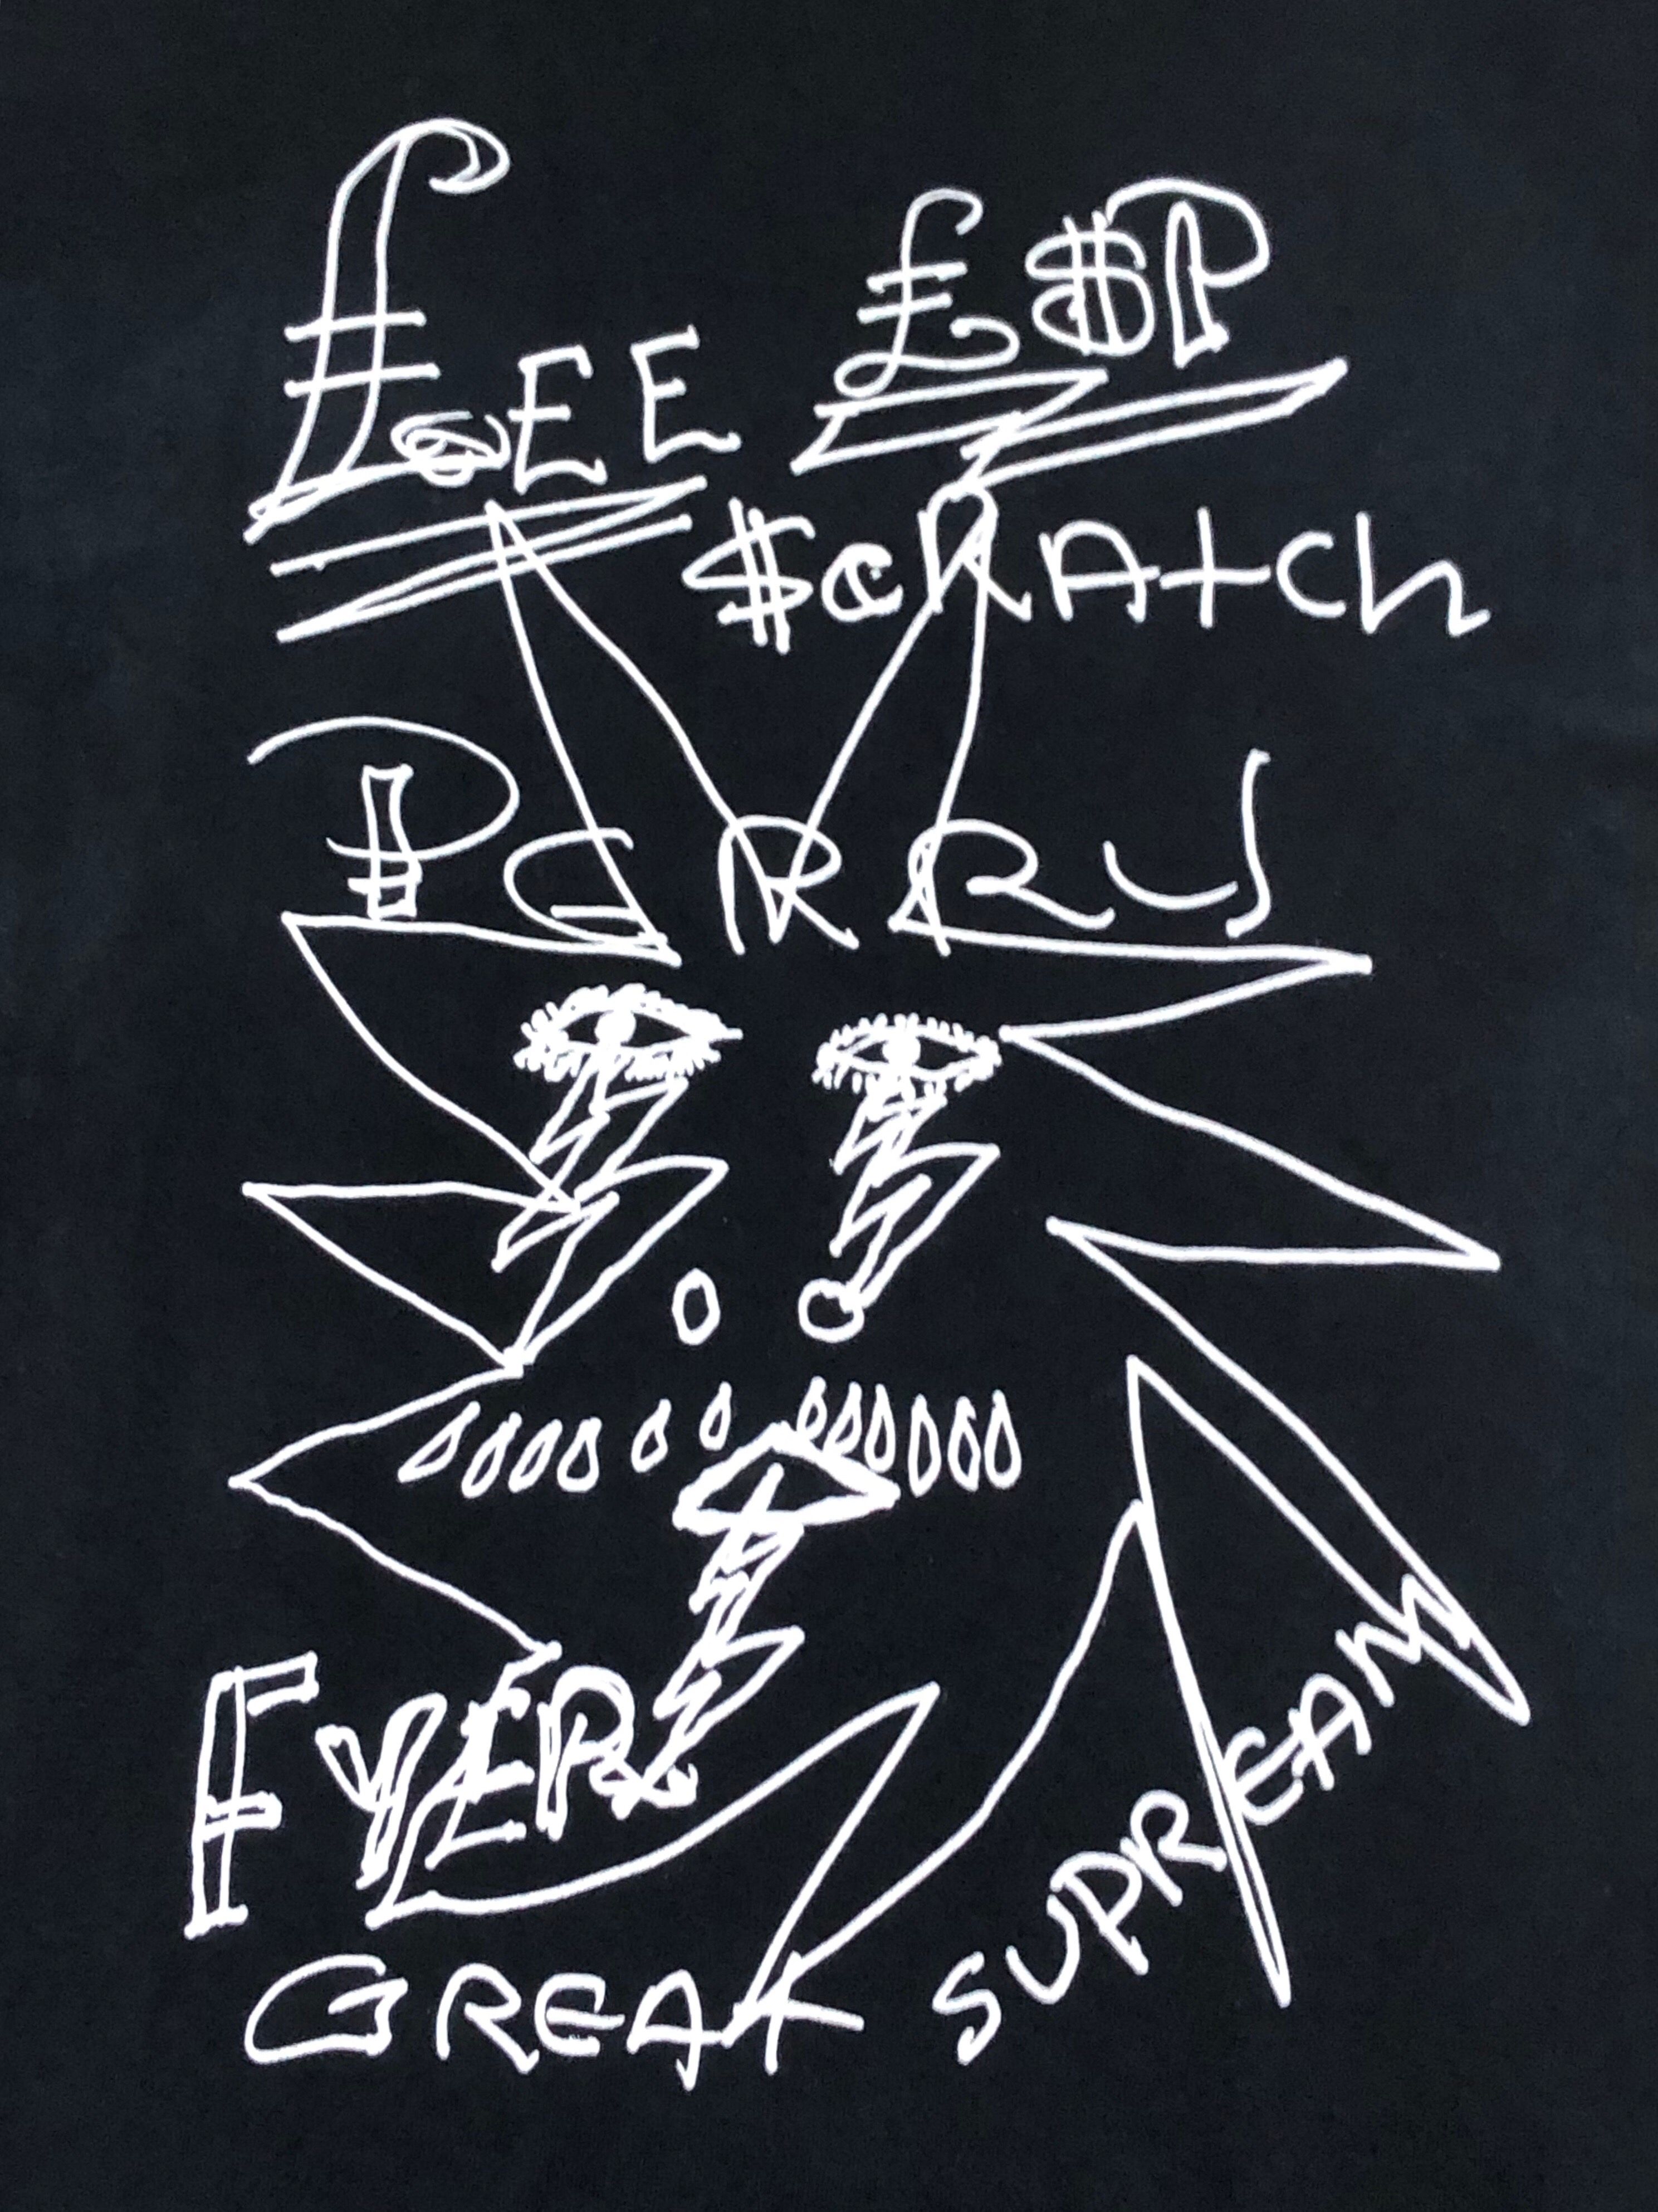 £EE £$P
$CRATCH
PERRY
FYER
GREAT SUPREAM